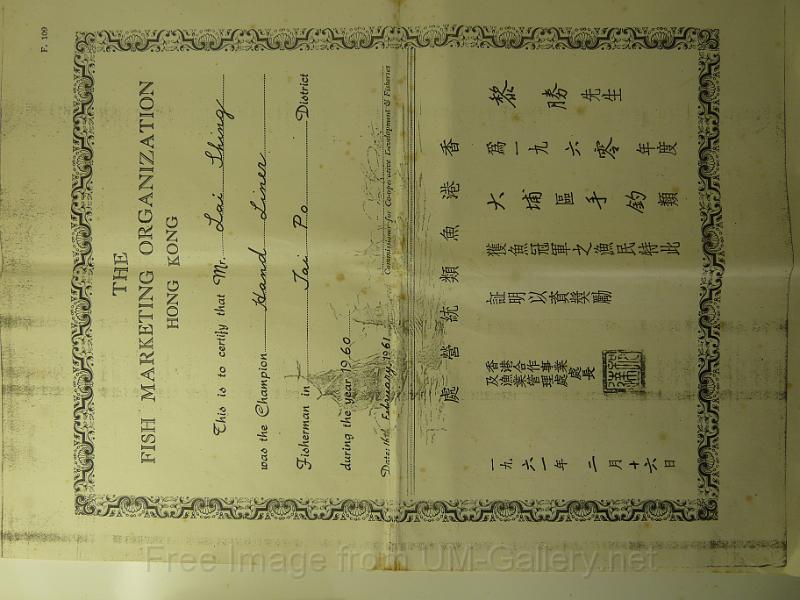 F. 109
THE
FISH MARKETING ORGANIZATION
HONG KONG
This is to certify that Mr. Lai Shing
was the Champion Hand Liner
Fisherman in Tai Po District
during the year 1960
Dated February, 1961
Commissioner for Co-operative Development & Fisheries
香港魚類統營處
黎勝先生
為一九六零年度
大埔區手釣類
獲魚冠軍之漁民特此
証明以資獎勵
香港合作事業
及漁業管理處處長
一九六一年二月十六日
Free Image from UM-Gallery.net